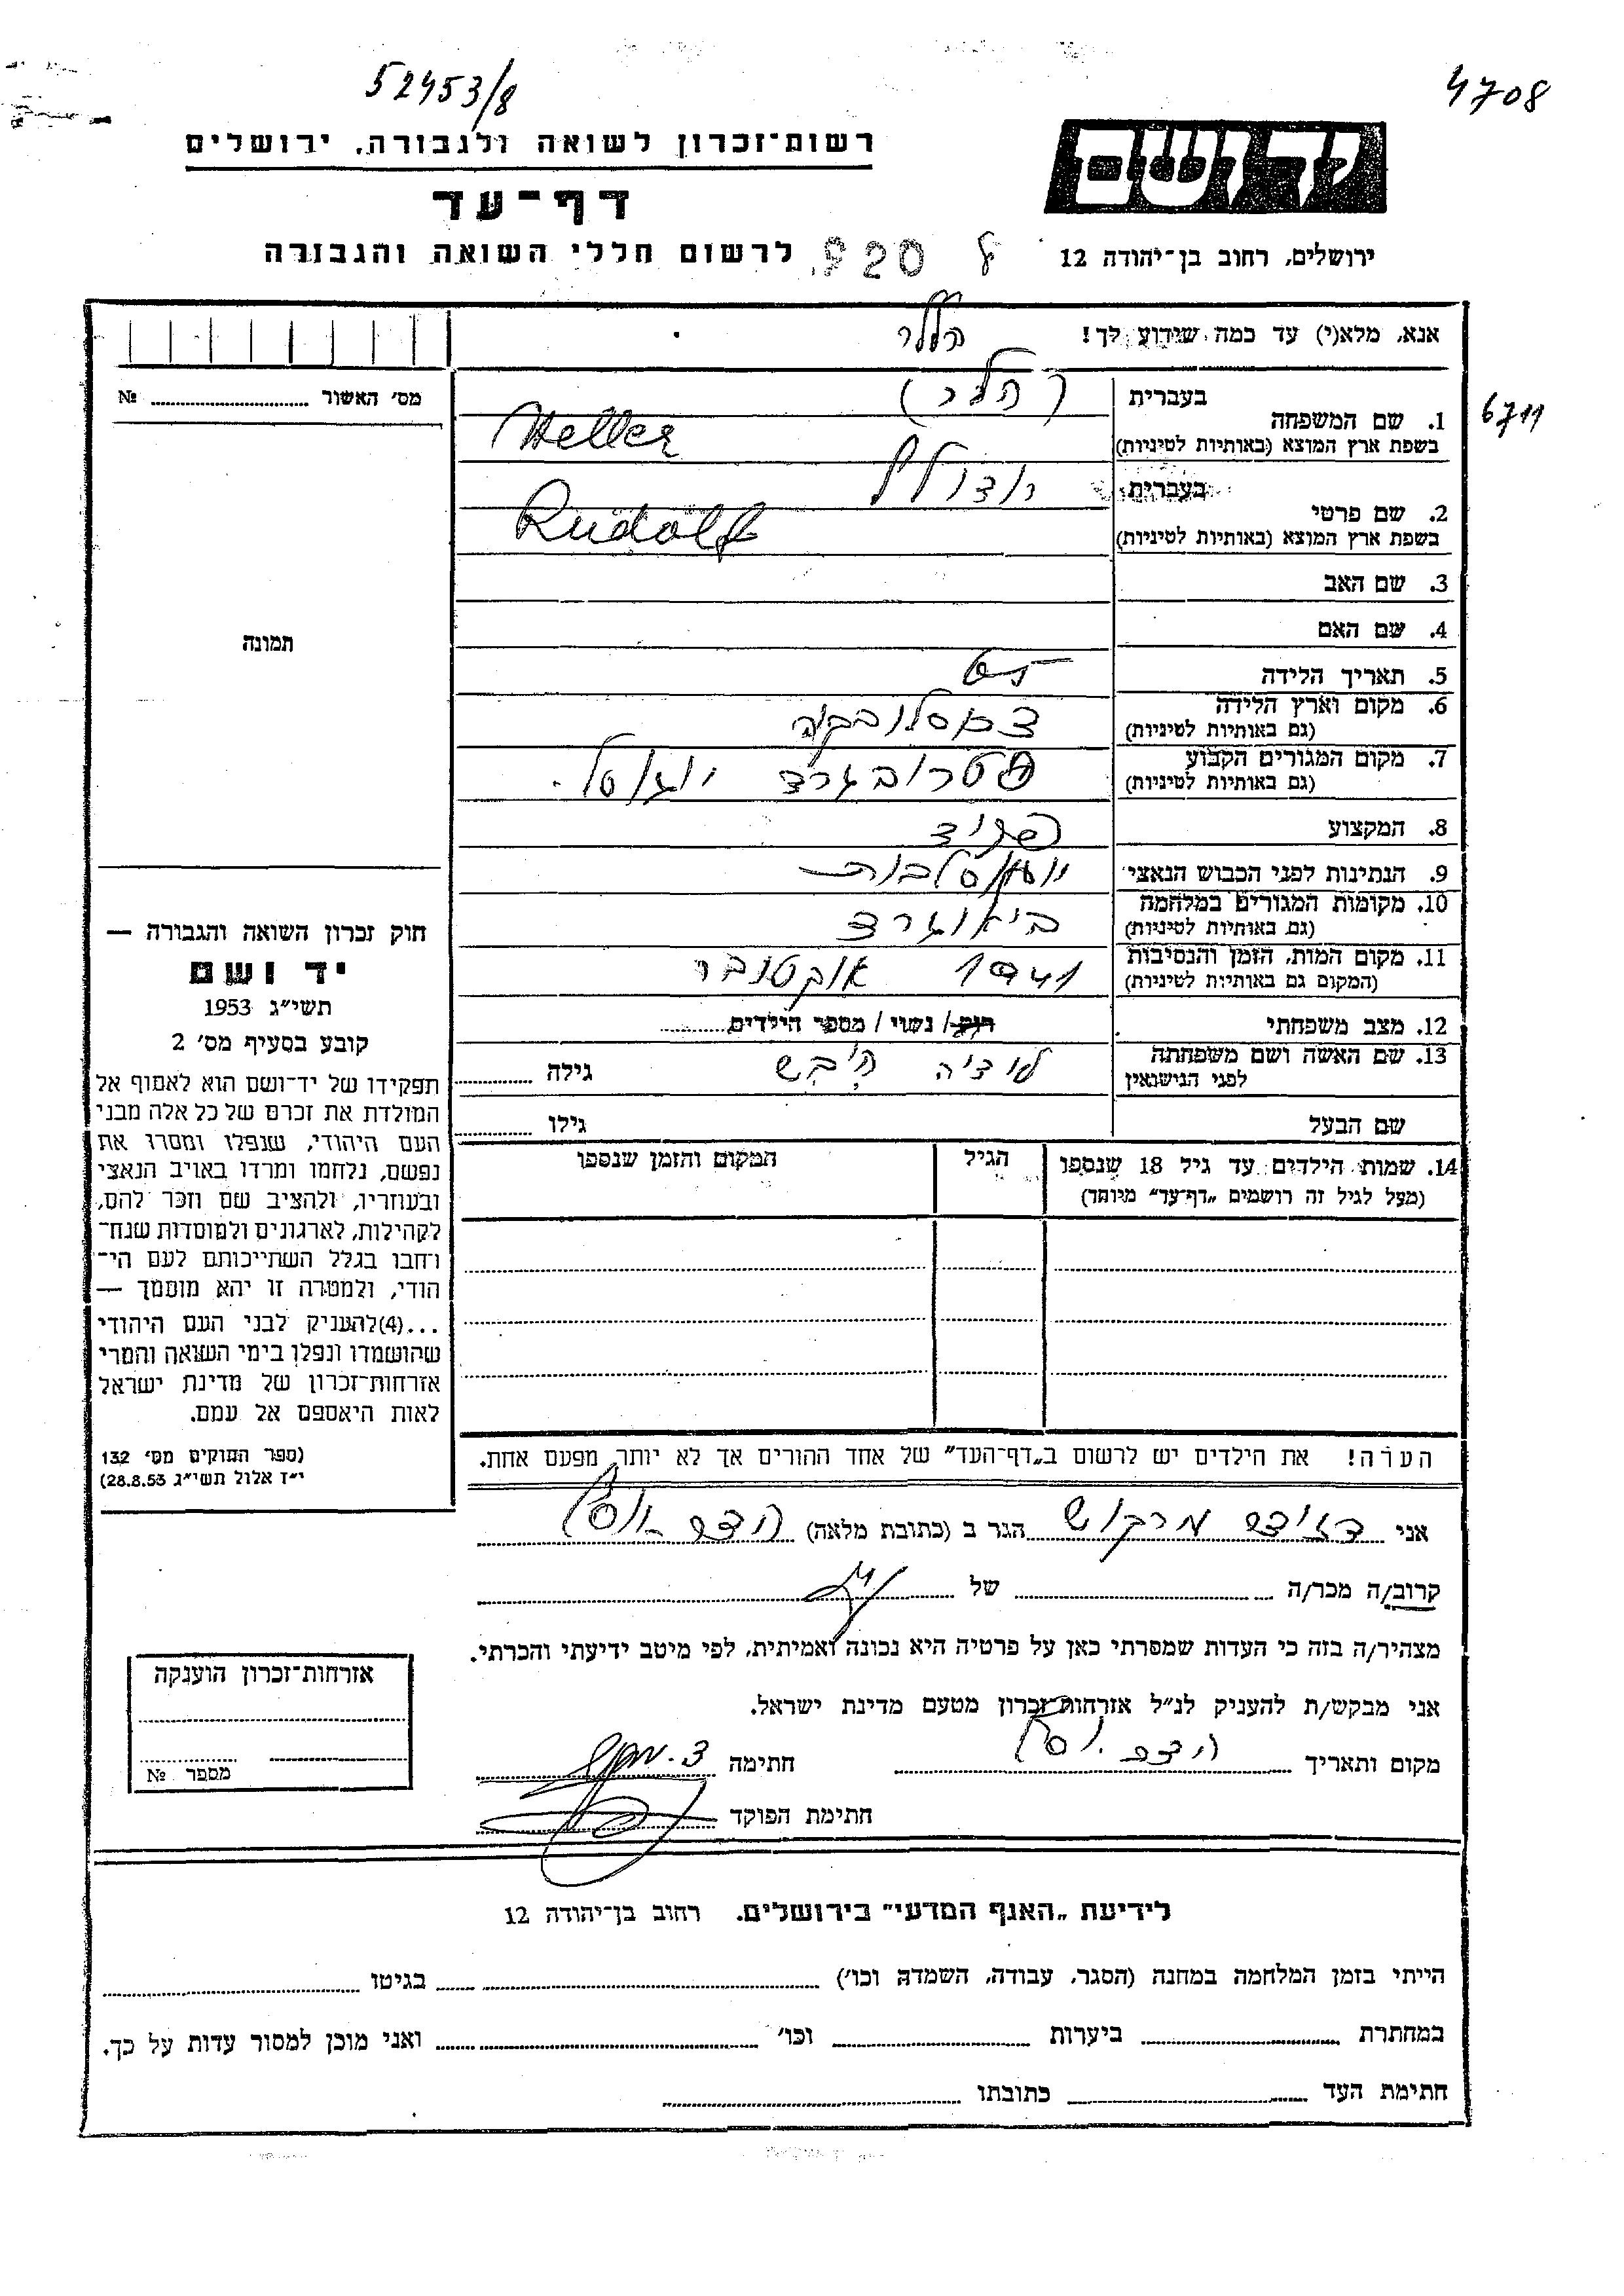 52453/8
4708
רשות־זכרון לשואה ולגבורה, ירושלים
יד ושם
דף־עד
לרשום חללי השואה והגבורה
920 8
ירושלים, רחוב בן־יהודה 12
אנא, מלא(י) עד כמה שידוע לך!
הללר
מס׳ האשור № 
בעברית
(הלר)
1. שם המשפחה
6711
בשפת ארץ המוצא (באותיות לטיניות)
Heller
בעברית
רודולף
2. שם פרטי
בשפת ארץ המוצא (באותיות לטיניות)
Rudolf
3. שם האב
4. שם האם
תמונה
5. תאריך הלידה
6. מקום וארץ הלידה
(גם באותיות לטיניות)
7. מקום המגורים הקבוע
(גם באותיות לטיניות)
8. המקצוע
פקיד
9. הנתינות לפני הכבוש הנאצי
10. מקומות המגורים במלחמה
(גם באותיות לטיניות)
ביאוגרד
11. מקום המות, הזמן והנסיבות
(המקום גם באותיות לטיניות)
1941 אוקטובר
12. מצב משפחתי
רוק / נשוי / מספר הילדים
13. שם האשה ושם משפחתה
לפני הנישואין
גילה
שם הבעל
גילו
חוק זכרון השואה והגבורה —
יד ושם
תשי״ג 1953
קובע בסעיף מס׳ 2
תפקידו של יד־ושם הוא לאסוף אל
המולדת את זכרם של כל אלה מבני
העם היהודי, שנפלו ומסרו את
נפשם, נלחמו ומרדו באויב הנאצי
ובעוזריו, ולהציב שם וזכר להם,
לקהילות, לארגונים ולמוסדות שנח־
רחבו בגלל השתייכותם לעם הי־
הודי, ולמטרה זו יהא מוסמך —
...(4)להעניק לבני העם היהודי
שהושמדו ונפלו בימי השואה והמרי
אזרחות־זכרון של מדינת ישראל
לאות היאספם אל עמם.
(ספר החוקים מס׳ 132
י״ז אלול תשי״ג 28.8.53)
14. שמות הילדים עד גיל 18 שנספו
(מעל לגיל זה רושמים „דף־עד״ מיוחד)
הגיל
המקום והזמן שנספו
הערה! את הילדים יש לרשום ב„דף־העד״ של אחד ההורים אך לא יותר מפעם אחת.
אני דוד מרקוש הגר ב (כתובת מלאה)
קרוב/ה מכר/ה של
מצהיר/ה בזה כי העדות שמסרתי כאן על פרטיה היא נכונה ואמיתית, לפי מיטב ידיעתי והכרתי.
אני מבקש/ת להעניק לנ״ל אזרחות־זכרון מטעם מדינת ישראל.
מקום ותאריך
חתימה
חתימת הפוקד
אזרחות־זכרון הוענקה
מספר №
לידיעת „האגף המדעי״ בירושלים. רחוב בן־יהודה 12
הייתי בזמן המלחמה במחנה (הסגר, עבודה, השמדה וכו׳) בגיטו
במחתרת ביערות וכו׳ ואני מוכן למסור עדות על כך.
חתימת העד כתובתו